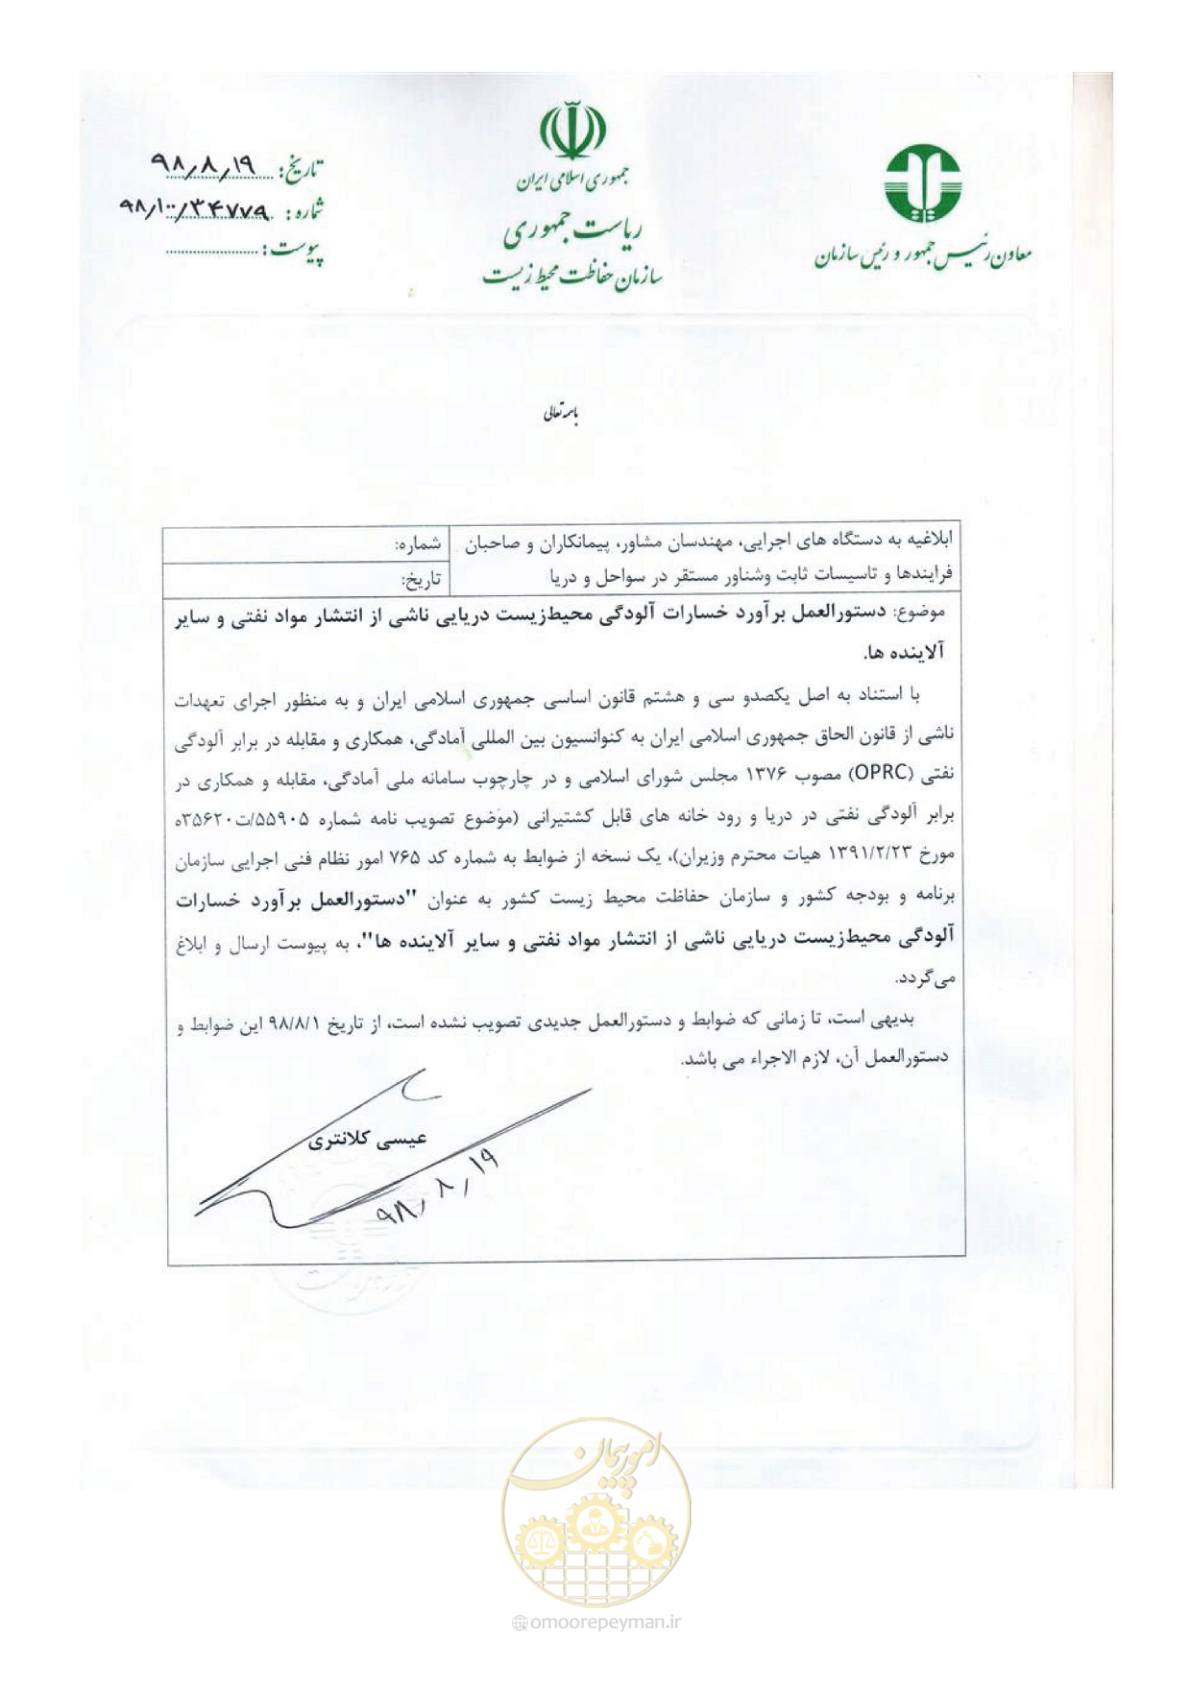 جمهوری اسلامی ایران
ریاست جمهوری
سازمان حفاظت محیط زیست
معاون رئیس جمهور و رئیس سازمان
تاریخ: ۹۸/۸/۱۹
شماره: ۹۸/۱۰۰/۳۴۷۷۹
پیوست:
باسمه تعالی
ابلاغیه به دستگاه های اجرایی، مهندسان مشاور، پیمانکاران و صاحبان
فرایندها و تاسیسات ثابت وشناور مستقر در سواحل و دریا
شماره:
تاریخ:
موضوع: دستورالعمل برآورد خسارات آلودگی محیط‌زیست دریایی ناشی از انتشار مواد نفتی و سایر
آلاینده ها.
با استناد به اصل یکصدو سی و هشتم قانون اساسی جمهوری اسلامی ایران و به منظور اجرای تعهدات
ناشی از قانون الحاق جمهوری اسلامی ایران به کنوانسیون بین المللی آمادگی، همکاری و مقابله در برابر آلودگی
نفتی (OPRC) مصوب ۱۳۷۶ مجلس شورای اسلامی و در چارچوب سامانه ملی آمادگی، مقابله و همکاری در
برابر آلودگی نفتی در دریا و رود خانه های قابل کشتیرانی (موضوع تصویب نامه شماره ۵۵۹۰۵/ت۳۵۶۲۰ه
مورخ ۱۳۹۱/۲/۲۳ هیات محترم وزیران)، یک نسخه از ضوابط به شماره کد ۷۶۵ امور نظام فنی اجرایی سازمان
برنامه و بودجه کشور و سازمان حفاظت محیط زیست کشور به عنوان "دستورالعمل برآورد خسارات
آلودگی محیط‌زیست دریایی ناشی از انتشار مواد نفتی و سایر آلاینده ها"، به پیوست ارسال و ابلاغ
می‌گردد.
بدیهی است، تا زمانی که ضوابط و دستورالعمل جدیدی تصویب نشده است، از تاریخ ۹۸/۸/۱ این ضوابط و
دستورالعمل آن، لازم الاجراء می باشد.
عیسی کلانتری
۹۸/۸/۱۹
امور پیمان
omoorepeyman.ir